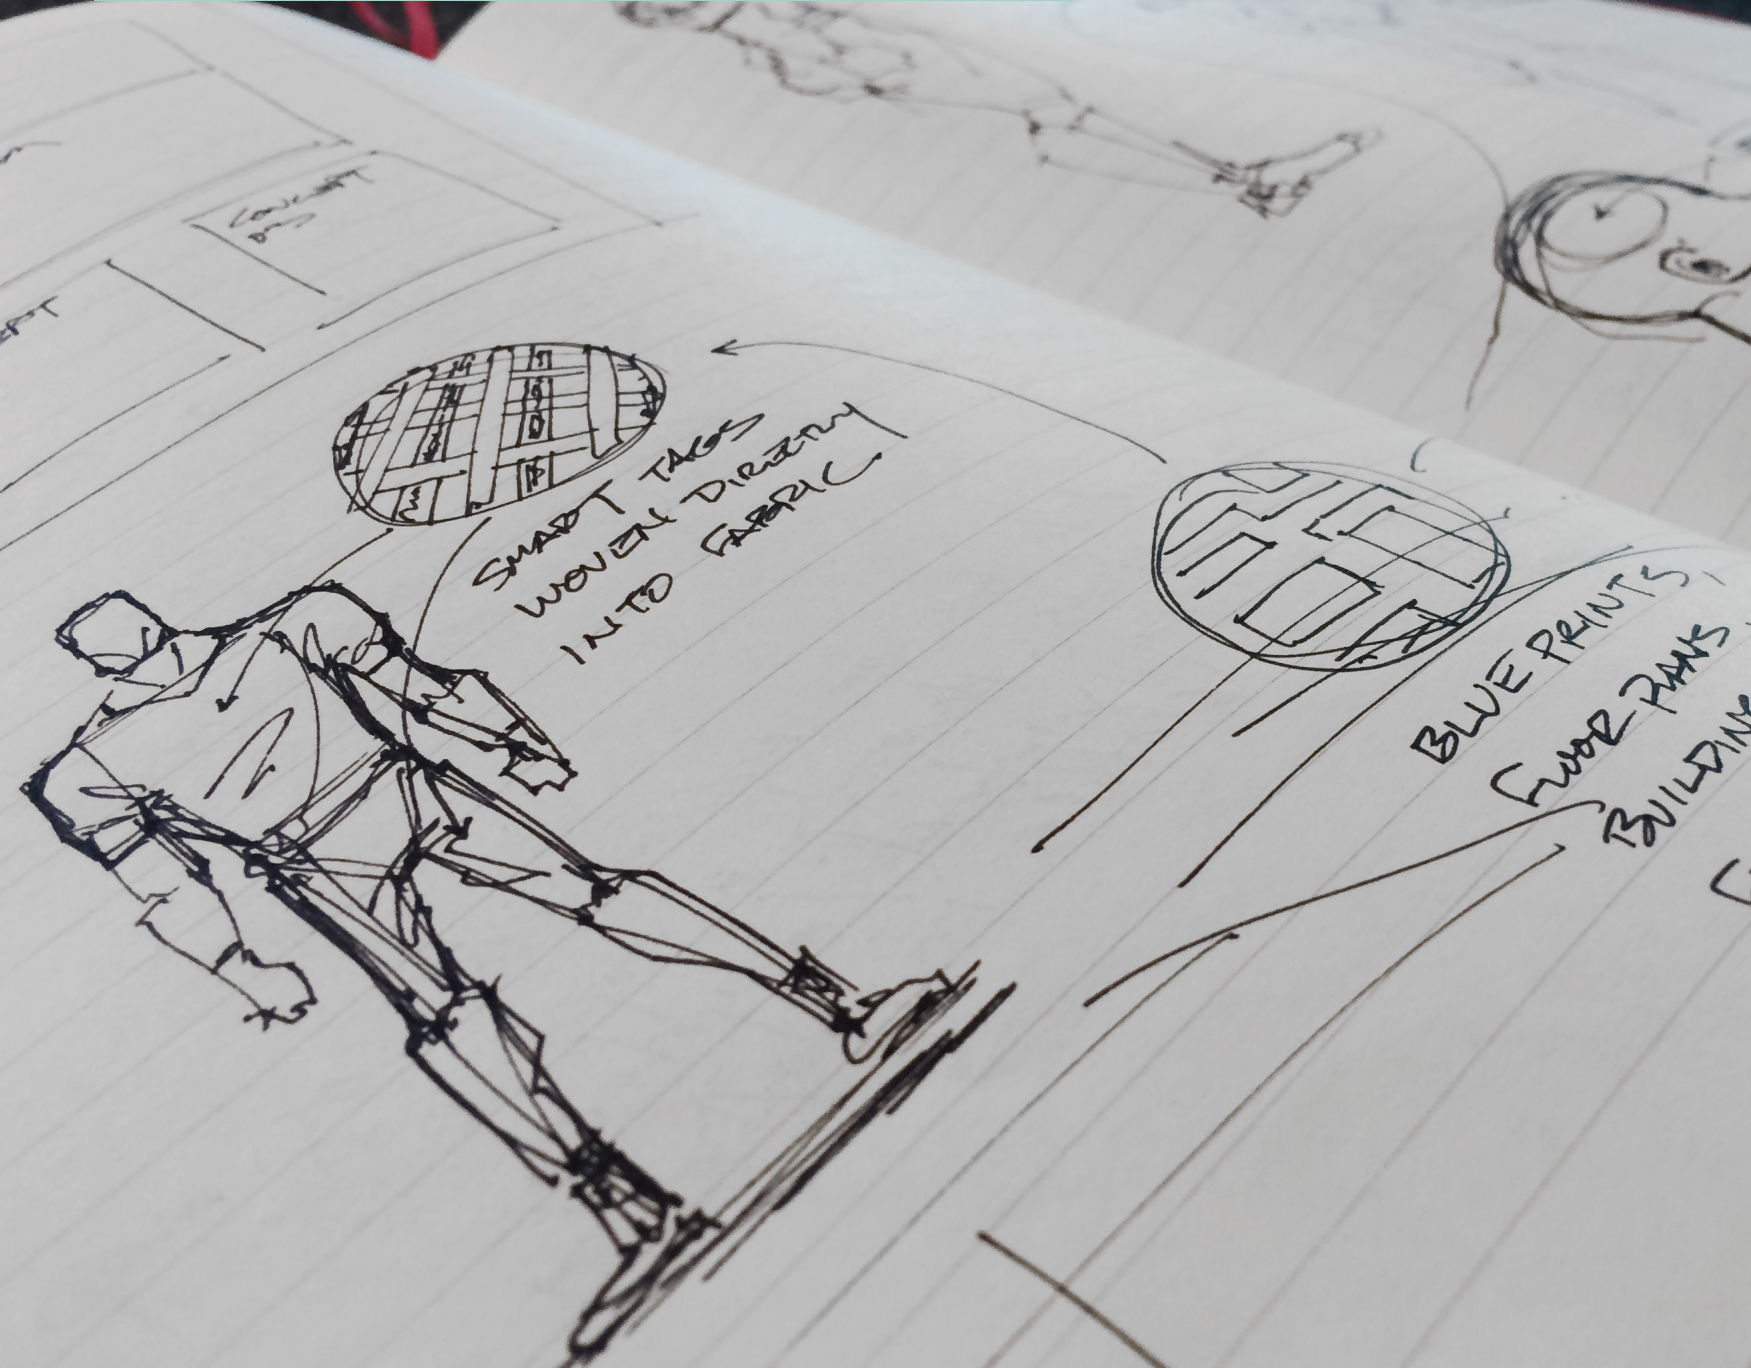 CONCEPT
SMART TAGS
WOVEN DIRECTLY
INTO FABRIC.
BLUE PRINTS,
FLOOR PLANS,
BUILDING